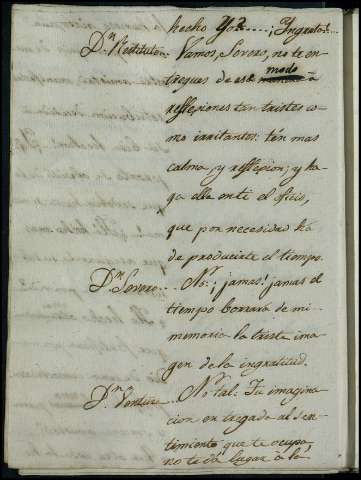 hecho Yo?.... ¡Ingrato!...
Dn. Restituto.. Vamos, Severo, no te en-
modo
tregues de ese à
reflexiones tan tristes co-
mo irritantes: ten mas
calma, y reflexion; y ha-
ga ella en ti el oficio,
que por necesidad há
de producirte el tiempo.
Dn. Severo.... No; ¡jamas! jamas el
tiempo borrará de mi
memoria la triste ima-
gen de la ingratitud.
Dn. Ventura.. No tal. Tu imagina-
cion entregada al sen-
timiento que te ocupa,
no te dá lugar à la